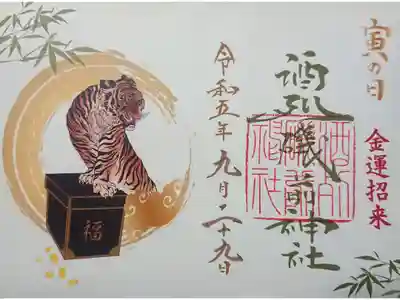 寅の日
金運招来
酒列磯前神社
令和五年九月二十九日
福